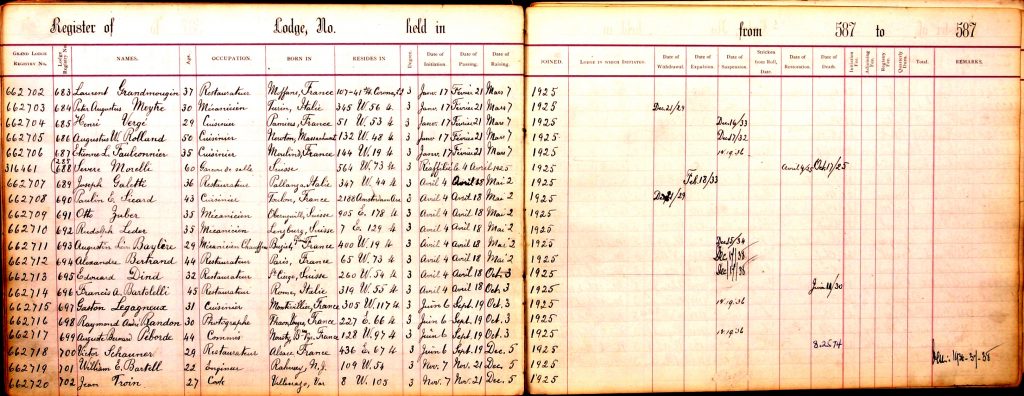 Register of Lodge, No. held in from 587 to 587
Grand Lodge Registry No. Lodge Registry No. NAMES. Age. OCCUPATION. BORN IN RESIDES IN Degree. Date of Initiation. Date of Passing. Date of Raising. JOINED. LODGE IN WHICH INITIATED. Date of Withdrawal. Date of Expulsion. Date of Suspension. Stricken from Roll, Date. Date of Restoration. Date of Death. Initiation Fee. Advancing Fee. Registry Fee. Quarterly Dues. Total. REMARKS.
662702 683 Laurent Grandmougin 37 Restaurateur France 107-41 3 Janv. 17 Février 21 Mars 7 1925
662703 684 Peter Augustus Meytre 30 Mécanicien Turin, Italie 345 W 56 3 Janv. 17 Février 21 Mars 7 1925 Dec. 21/29
662704 685 Henri Vergé 29 Cuisinier Pamiers, France 51 W. 53 3 Janv. 17 Février 21 Mars 7 1925 Dec 16/33
662705 686 Augustus W. Rolland 50 Cuisinier Newton, 132 W. 48 3 Janv. 17 Février 21 Mars 7 1925 Dec 17/32
662706 687 Etienne L. Faulconnier 35 Cuisinier Moulins, France 144 W. 19 3 Janv. 17 Février 21 Mars 7 1925 11.19.36
316461 288 688 Severe Morelli 60 Garcon de salle Suisse 564 W. 73 3 Réaffilié le 4 Avril 1925 Avril 4/25 Oct 17/25
662707 689 Joseph Galetti 36 Restaurateur Pallanza, Italie 347 W. 44 3 Avril 4 Avril 25 Mai 2 1925 Feb. 18/33
662708 690 Paulin E. Sicard 43 Cuisinier Toulon, France 2188 Amsterdam Ave 3 Avril 4 Avril 18 Mai 2 1925 Dec 21/29
662709 691 Otto Zuber 35 Mécanicien Suisse 905 E. 178 3 Avril 4 Avril 18 Mai 2 1925
662710 692 Rudolph Leder 35 Mécanicien Lenzburg, Suisse 7 E. 129 3 Avril 4 Avril 18 Mai 2 1925
662711 693 Augustin 29 Mécanicien Chauffeur France 400 W. 19 3 Avril 4 Avril 18 Mai 2 1925 Dec 15/34
662712 694 Alexandre Bertrand 44 Restaurateur Paris, France 65 W. 73 3 Avril 4 Avril 18 Mai 2 1925 Dec 17/38
662713 695 Edouard Dind 32 Restaurateur Suisse 260 W. 54 3 Avril 4 Avril 18 Oct. 3 1925 Dec 17/38
662714 696 Francis A. Bartolelli 45 Restaurateur Rome, Italie 319 W. 55 3 Avril 4 Avril 18 Oct. 3 1925 Juin 14/30
662715 697 Gaston Legagneux 31 Cuisinier France 305 W. 117 3 Juin 6 Sept. 19 Oct. 3 1925 11.19.36
662716 698 Raymond André Randon 30 Photographe France 227 E. 66 3 Juin 6 Sept. 19 Oct. 3 1925
662717 699 Auguste Bernard Peborde 44 Commis France 128 W. 97 3 Juin 6 Sept. 19 Oct. 3 1925 11.19.36
662718 700 Victor Schauner 29 Restaurateur Alsace France 436 E. 67 3 Juin 6 Sept. 19 Dec. 5 1925 8.25.74
662719 701 William E. Bartell 22 Engineer Rahway, N.J. 109 W. 54 3 Nov. 7 Nov. 21 Dec. 5 1925
662720 702 Jean Troin 27 Cook Var 8 W. 105 3 Nov. 7 Nov. 21 Dec. 5 1925